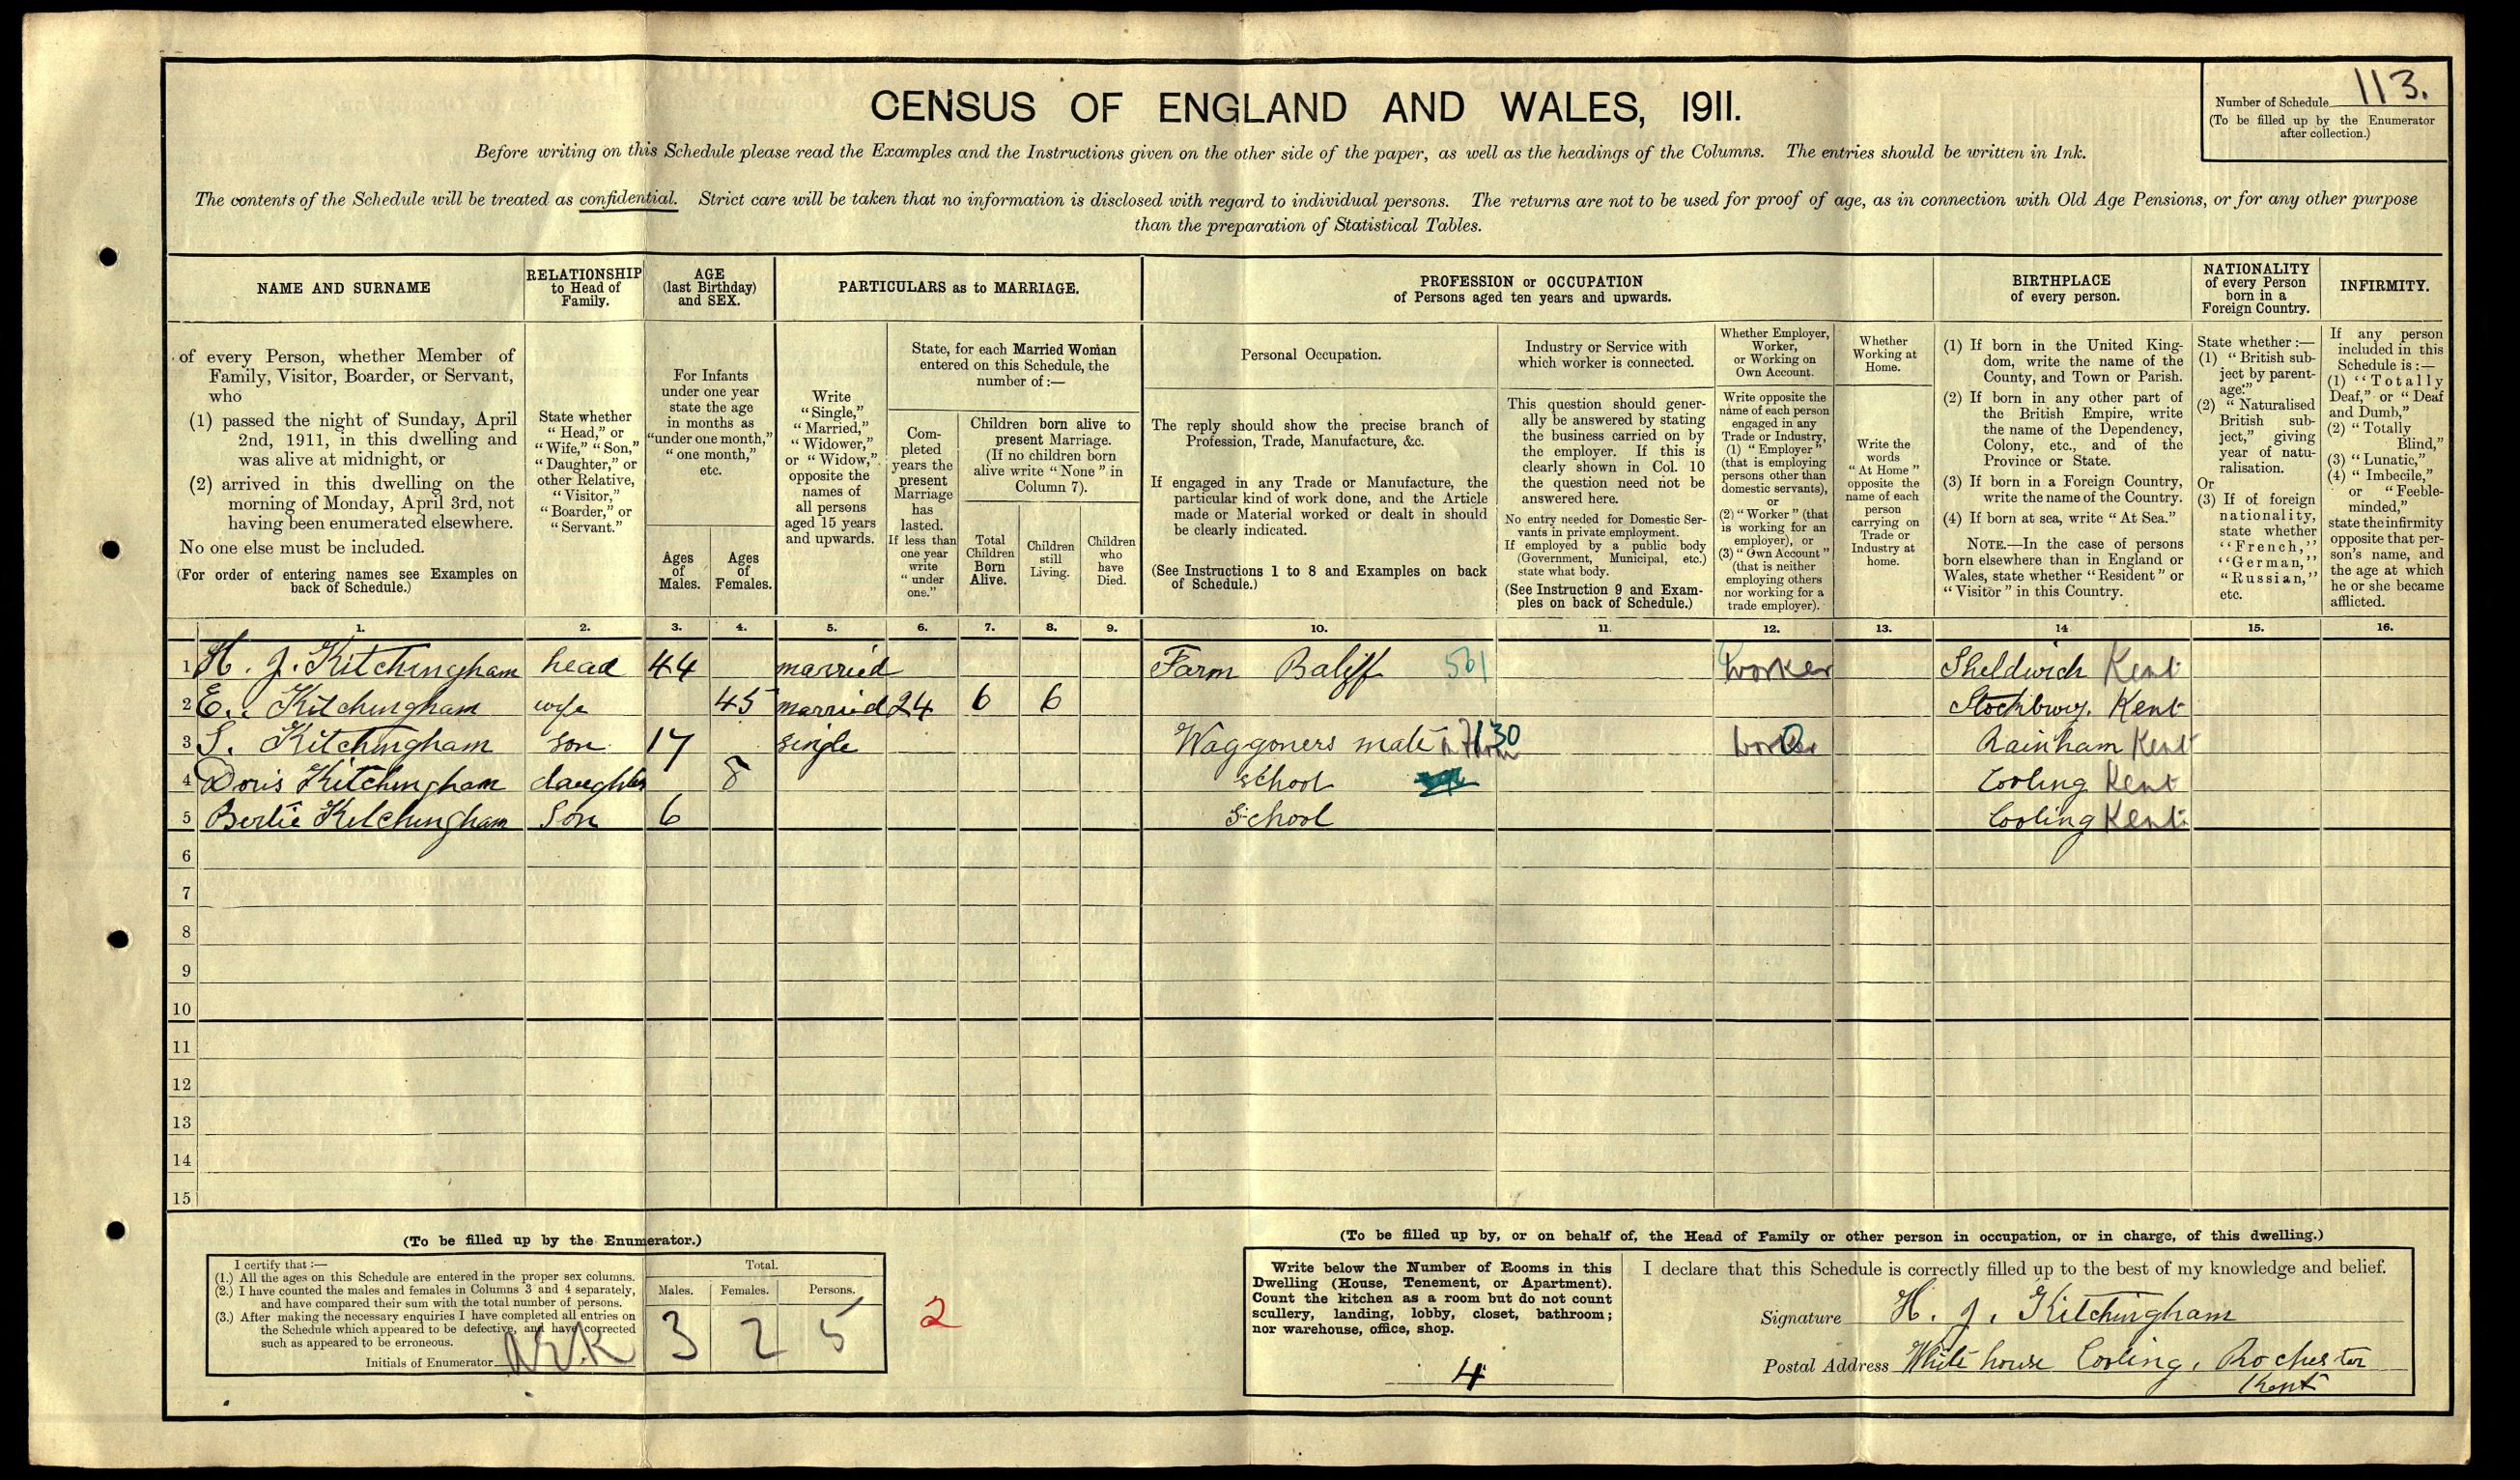 CENSUS OF ENGLAND AND WALES, 1911.
Number of Schedule 113.
(To be filled up by the Enumerator
after collection.)
Before writing on this Schedule please read the Examples and the Instructions given on the other side of the paper, as well as the headings of the Columns. The entries should be written in Ink.
The contents of the Schedule will be treated as confidential. Strict care will be taken that no information is disclosed with regard to individual persons. The returns are not to be used for proof of age, as in connection with Old Age Pensions, or for any other purpose
than the preparation of Statistical Tables.
NAME AND SURNAME
of every Person, whether Member of
Family, Visitor, Boarder, or Servant,
who
(1) passed the night of Sunday, April
2nd, 1911, in this dwelling and
was alive at midnight, or
(2) arrived in this dwelling on the
morning of Monday, April 3rd, not
having been enumerated elsewhere.
No one else must be included.
(For order of entering names see Examples on
back of Schedule.)
RELATIONSHIP
to Head of
Family.
State whether
"Head," or
"Wife," "Son,"
"Daughter," or
other Relative,
"Visitor,"
"Boarder," or
"Servant."
AGE
(last Birthday)
and SEX.
For Infants
under one year
state the age
in months as
"under one month,"
"one month,"
etc.
Ages
of
Males.
Ages
of
Females.
PARTICULARS as to MARRIAGE.
Write
"Single,"
"Married,"
"Widower,"
or "Widow,"
opposite the
names of
all persons
aged 15 years
and upwards.
State, for each Married Woman
entered on this Schedule, the
number of:—
Com-
pleted
years the
present
Marriage
has
lasted.
If less than
one year
write
"under
one."
Children born alive to
present Marriage.
(If no children born
alive write "None" in
Column 7).
Total
Children
Born
Alive.
Children
still
Living.
Children
who
have
Died.
PROFESSION or OCCUPATION
of Persons aged ten years and upwards.
Personal Occupation.
The reply should show the precise branch of
Profession, Trade, Manufacture, &c.
If engaged in any Trade or Manufacture, the
particular kind of work done, and the Article
made or Material worked or dealt in should
be clearly indicated.
(See Instructions 1 to 8 and Examples on back
of Schedule.)
Industry or Service with
which worker is connected.
This question should gener-
ally be answered by stating
the business carried on by
the employer. If this is
clearly shown in Col. 10
the question need not be
answered here.
No entry needed for Domestic Ser-
vants in private employment.
If employed by a public body
(Government, Municipal, etc.)
state what body.
(See Instruction 9 and Exam-
ples on back of Schedule.)
Whether Employer,
Worker,
or Working on
Own Account.
Write opposite the
name of each person
engaged in any
Trade or Industry,
(1) "Employer"
(that is employing
persons other than
domestic servants),
or
(2) "Worker" (that
is working for an
employer), or
(3) "Own Account"
(that is neither
employing others
nor working for a
trade employer).
Whether
Working at
Home.
Write the
words
"At Home"
opposite the
name of each
person
carrying on
Trade or
Industry at
home.
BIRTHPLACE
of every person.
(1) If born in the United King-
dom, write the name of the
County, and Town or Parish.
(2) If born in any other part of
the British Empire, write
the name of the Dependency,
Colony, etc., and of the
Province or State.
(3) If born in a Foreign Country,
write the name of the Country.
(4) If born at sea, write "At Sea."
NOTE.—In the case of persons
born elsewhere than in England or
Wales, state whether "Resident" or
"Visitor" in this Country.
NATIONALITY
of every Person
born in a
Foreign Country.
State whether:—
(1) "British sub-
ject by parent-
age."
(2) "Naturalised
British sub-
ject," giving
year of natu-
ralisation.
Or
(3) If of foreign
nationality,
state whether
"French,"
"German,"
"Russian,"
etc.
INFIRMITY.
If any person
included in this
Schedule is:—
(1) "Totally
Deaf," or "Deaf
and Dumb,"
(2) "Totally
Blind,"
(3) "Lunatic,"
(4) "Imbecile,"
or "Feeble-
minded,"
state the infirmity
opposite that per-
son's name, and
the age at which
he or she became
afflicted.
1. 2. 3. 4. 5. 6. 7. 8. 9. 10. 11. 12. 13. 14. 15. 16.
1 H. J. Kitchingham head 44 married Farm Baliff 561 worker Sheldwich Kent
2 E. Kitchingham wife 45 married 24 6 6 Stockbury. Kent
3 S. Kitchingham son 17 single Waggoners mate 130 worker Rainham Kent
4 Doris Kitchingham daughter 8 school Cooling Kent
5 Bertie Kitchingham Son 6 School Cooling Kent
6
7
8
9
10
11
12
13
14
15
(To be filled up by the Enumerator.)
I certify that:—
(1.) All the ages on this Schedule are entered in the proper sex columns.
(2.) I have counted the males and females in Columns 3 and 4 separately,
and have compared their sum with the total number of persons.
(3.) After making the necessary enquiries I have completed all entries on
the Schedule which appeared to be defective, and have corrected
such as appeared to be erroneous.
Initials of Enumerator
Total.
Males. Females. Persons.
3 2 5
2
(To be filled up by, or on behalf of, the Head of Family or other person in occupation, or in charge, of this dwelling.)
Write below the Number of Rooms in this
Dwelling (House, Tenement, or Apartment).
Count the kitchen as a room but do not count
scullery, landing, lobby, closet, bathroom;
nor warehouse, office, shop.
4
I declare that this Schedule is correctly filled up to the best of my knowledge and belief.
Signature H. J. Kitchingham
Postal Address White house Cooling, Rochester
Kent